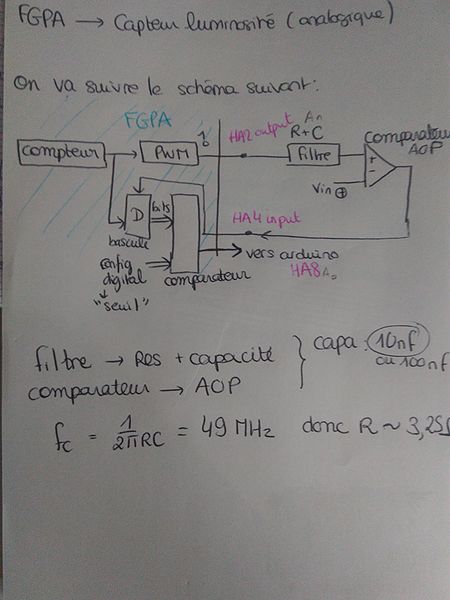 FGPA → Capteur luminosité (analogique)
On va suivre le schéma suivant:
FGPA
compteur
PWM
1
0
HA2 output
R+C
filtre
comparateur
AOP
+
-
Vin
HA4 input
D
bits
bascule
config
digital
"seuil"
comparateur
vers arduino
HA8
filtre → Res + capacité
comparateur → AOP
capa : 10nf
ou 100nf
fc = 1/2πRC = 49 MHz donc R ~ 3,25Ω